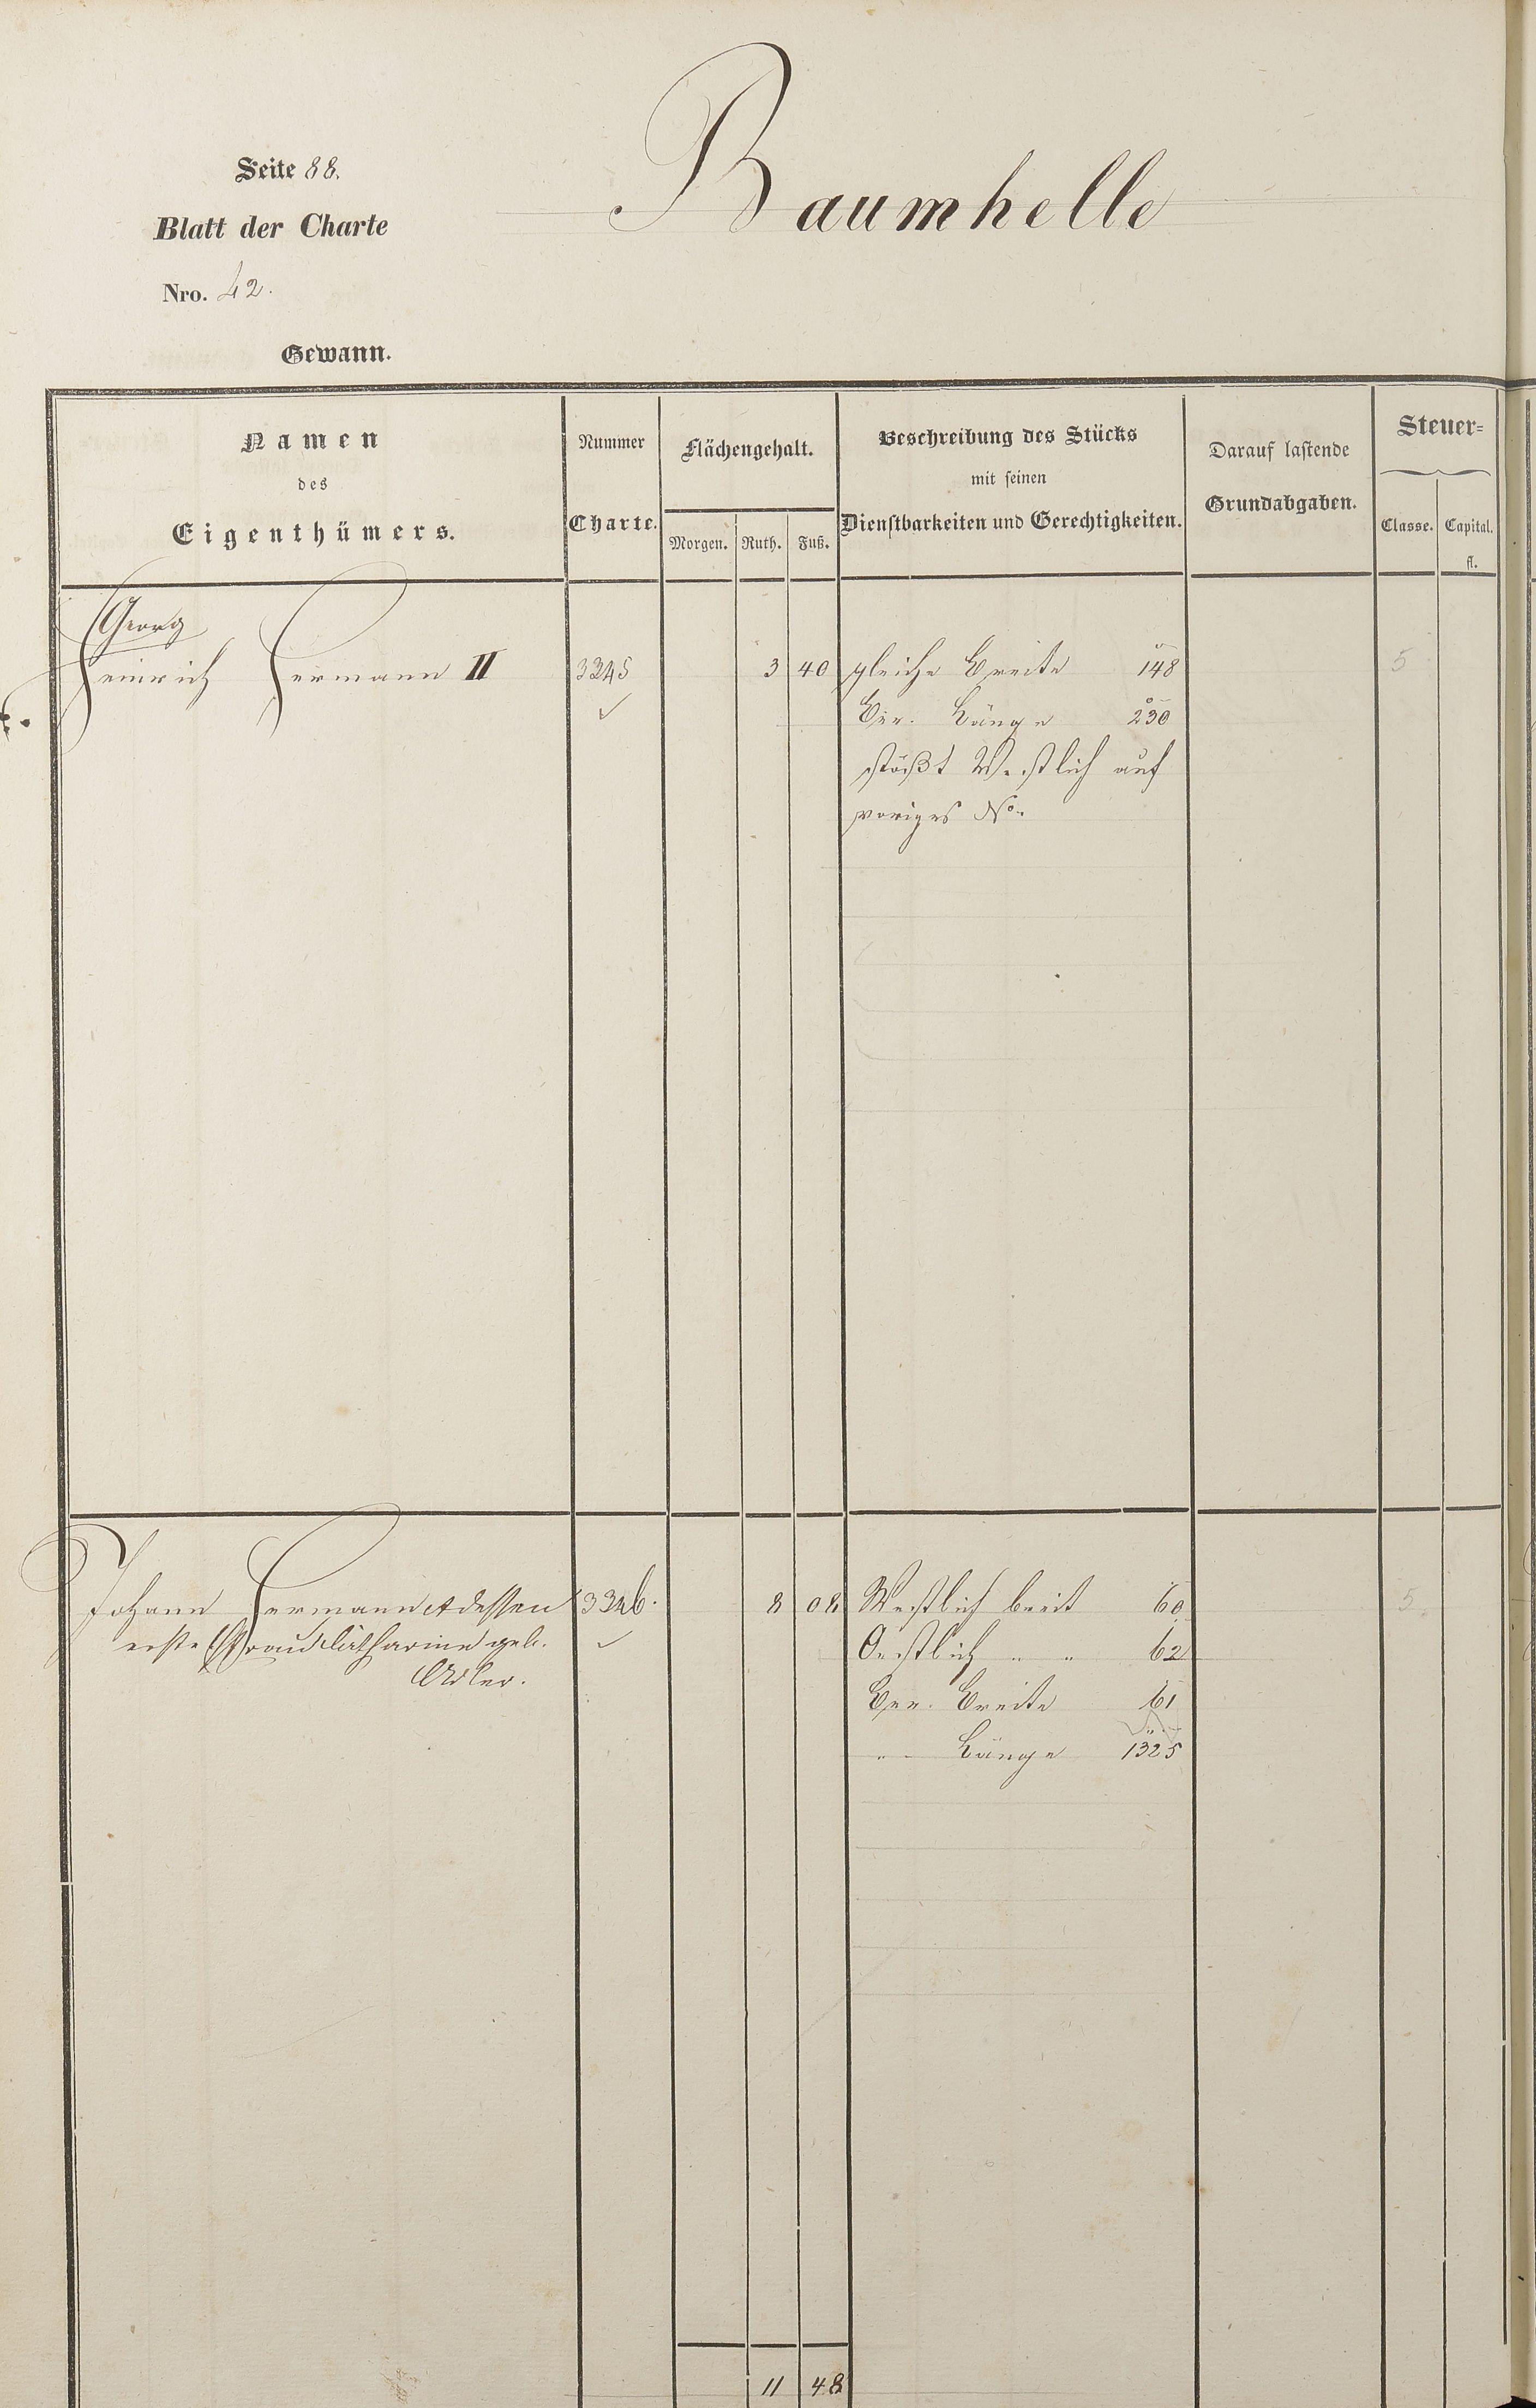 Seite 88.
Baumhelle
Blatt der Charte
Nro. 42.
Gewann.
Namen
des
Eigenthümers.
Nummer
Charte.
Flächengehalt.
Morgen. Ruth. Fuß.
Beschreibung des Stücks
mit seinen
Dienstbarkeiten und Gerechtigkeiten.
Darauf lastende
Grundabgaben.
Steuer=
Classe. Capital.
fl.
Georg
Heinrich Hermann II 3345 3 40 gleiche Breite 148 5
Ger. Länge 230
stößt Westlich auf
voriges No.
Johann Hermann et dessen 3346. 8 08 Westlich breit 60 5.
erste Frau Catharine geb. Oestlich " " 62
Adler.
Ger. Breite 61
" Länge 1325
11 48